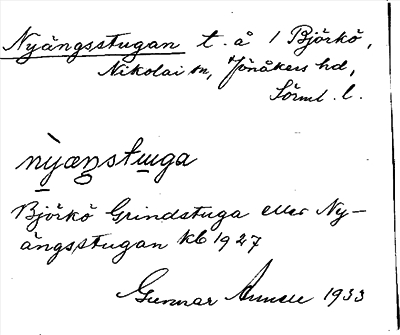 Nyängsstugan t. å 1 Björkö,
Nikolai sn, Jönåkers hd,
Sörml. l.
nỳæŋstu̲ga
Björkö Grindstuga eller Ny-
ängsstugan kb 1927
Gunnar 1933